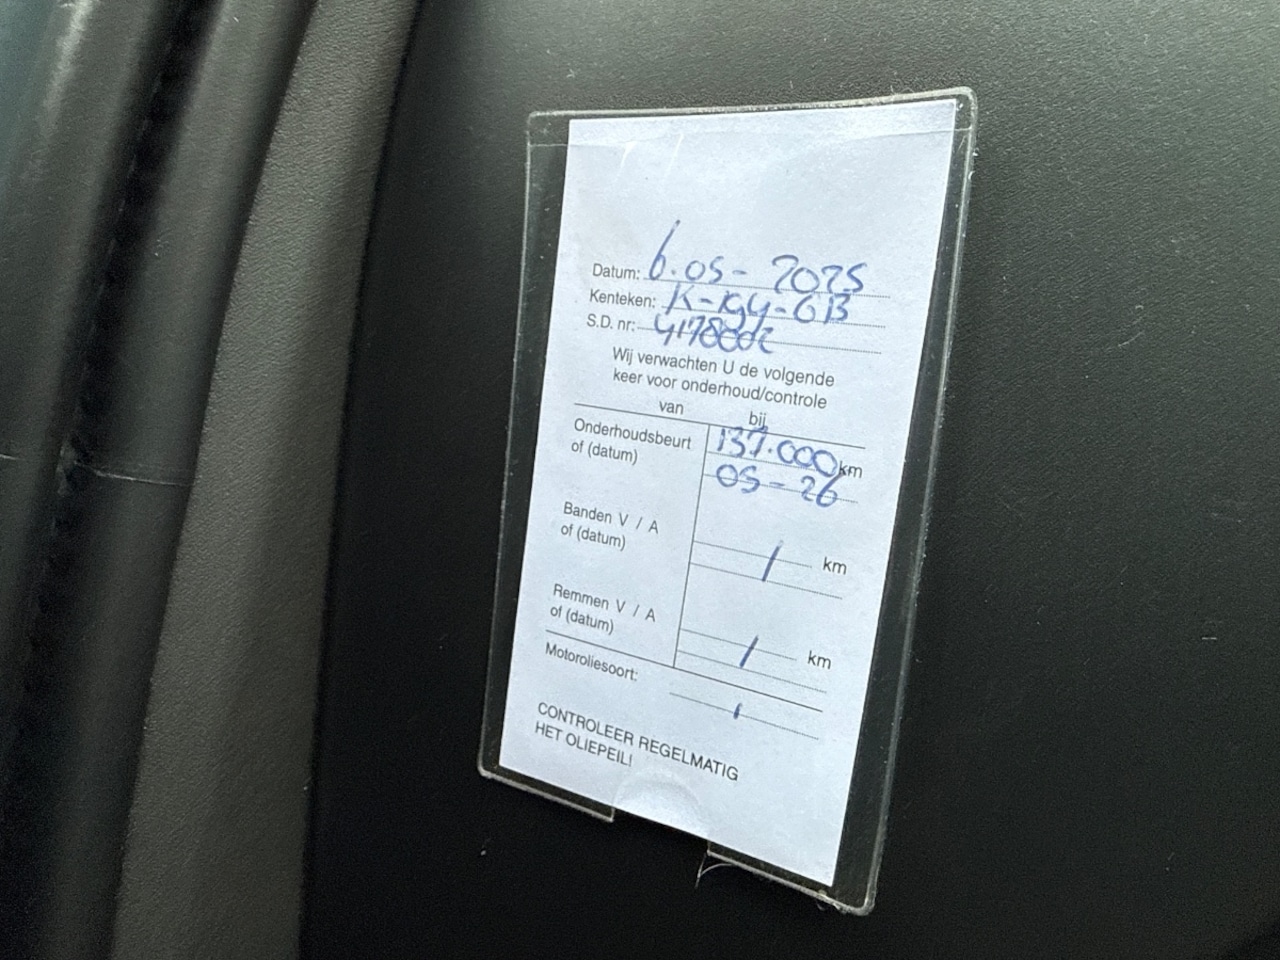 Datum: 6.05-2025
Kenteken: K-194-GB
S.D. nr:
Wij verwachten U de volgende
keer voor onderhoud/controle
van bij
Onderhoudsbeurt 137.000 km
of (datum) 05-26
Banden V / A / km
of (datum)
Remmen V / A / km
of (datum)
Motoroliesoort: /
CONTROLEER REGELMATIG
HET OLIEPEIL!